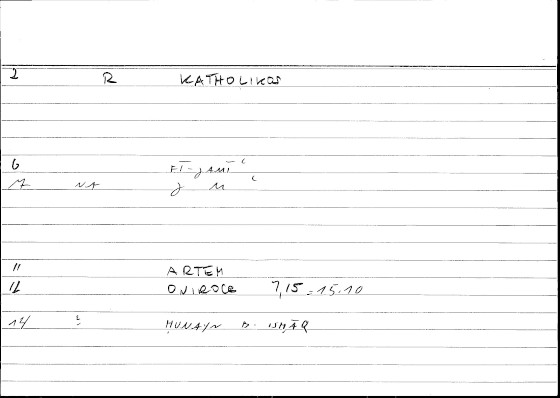 2 R KATHOLIKOS
6 FĪ-JAMĪʿ
17 NA J M ʿ
11 ARTEM
12 ONIROCR 7,15-15.10
14 : ḤUNAYN B. ISḤĀQ